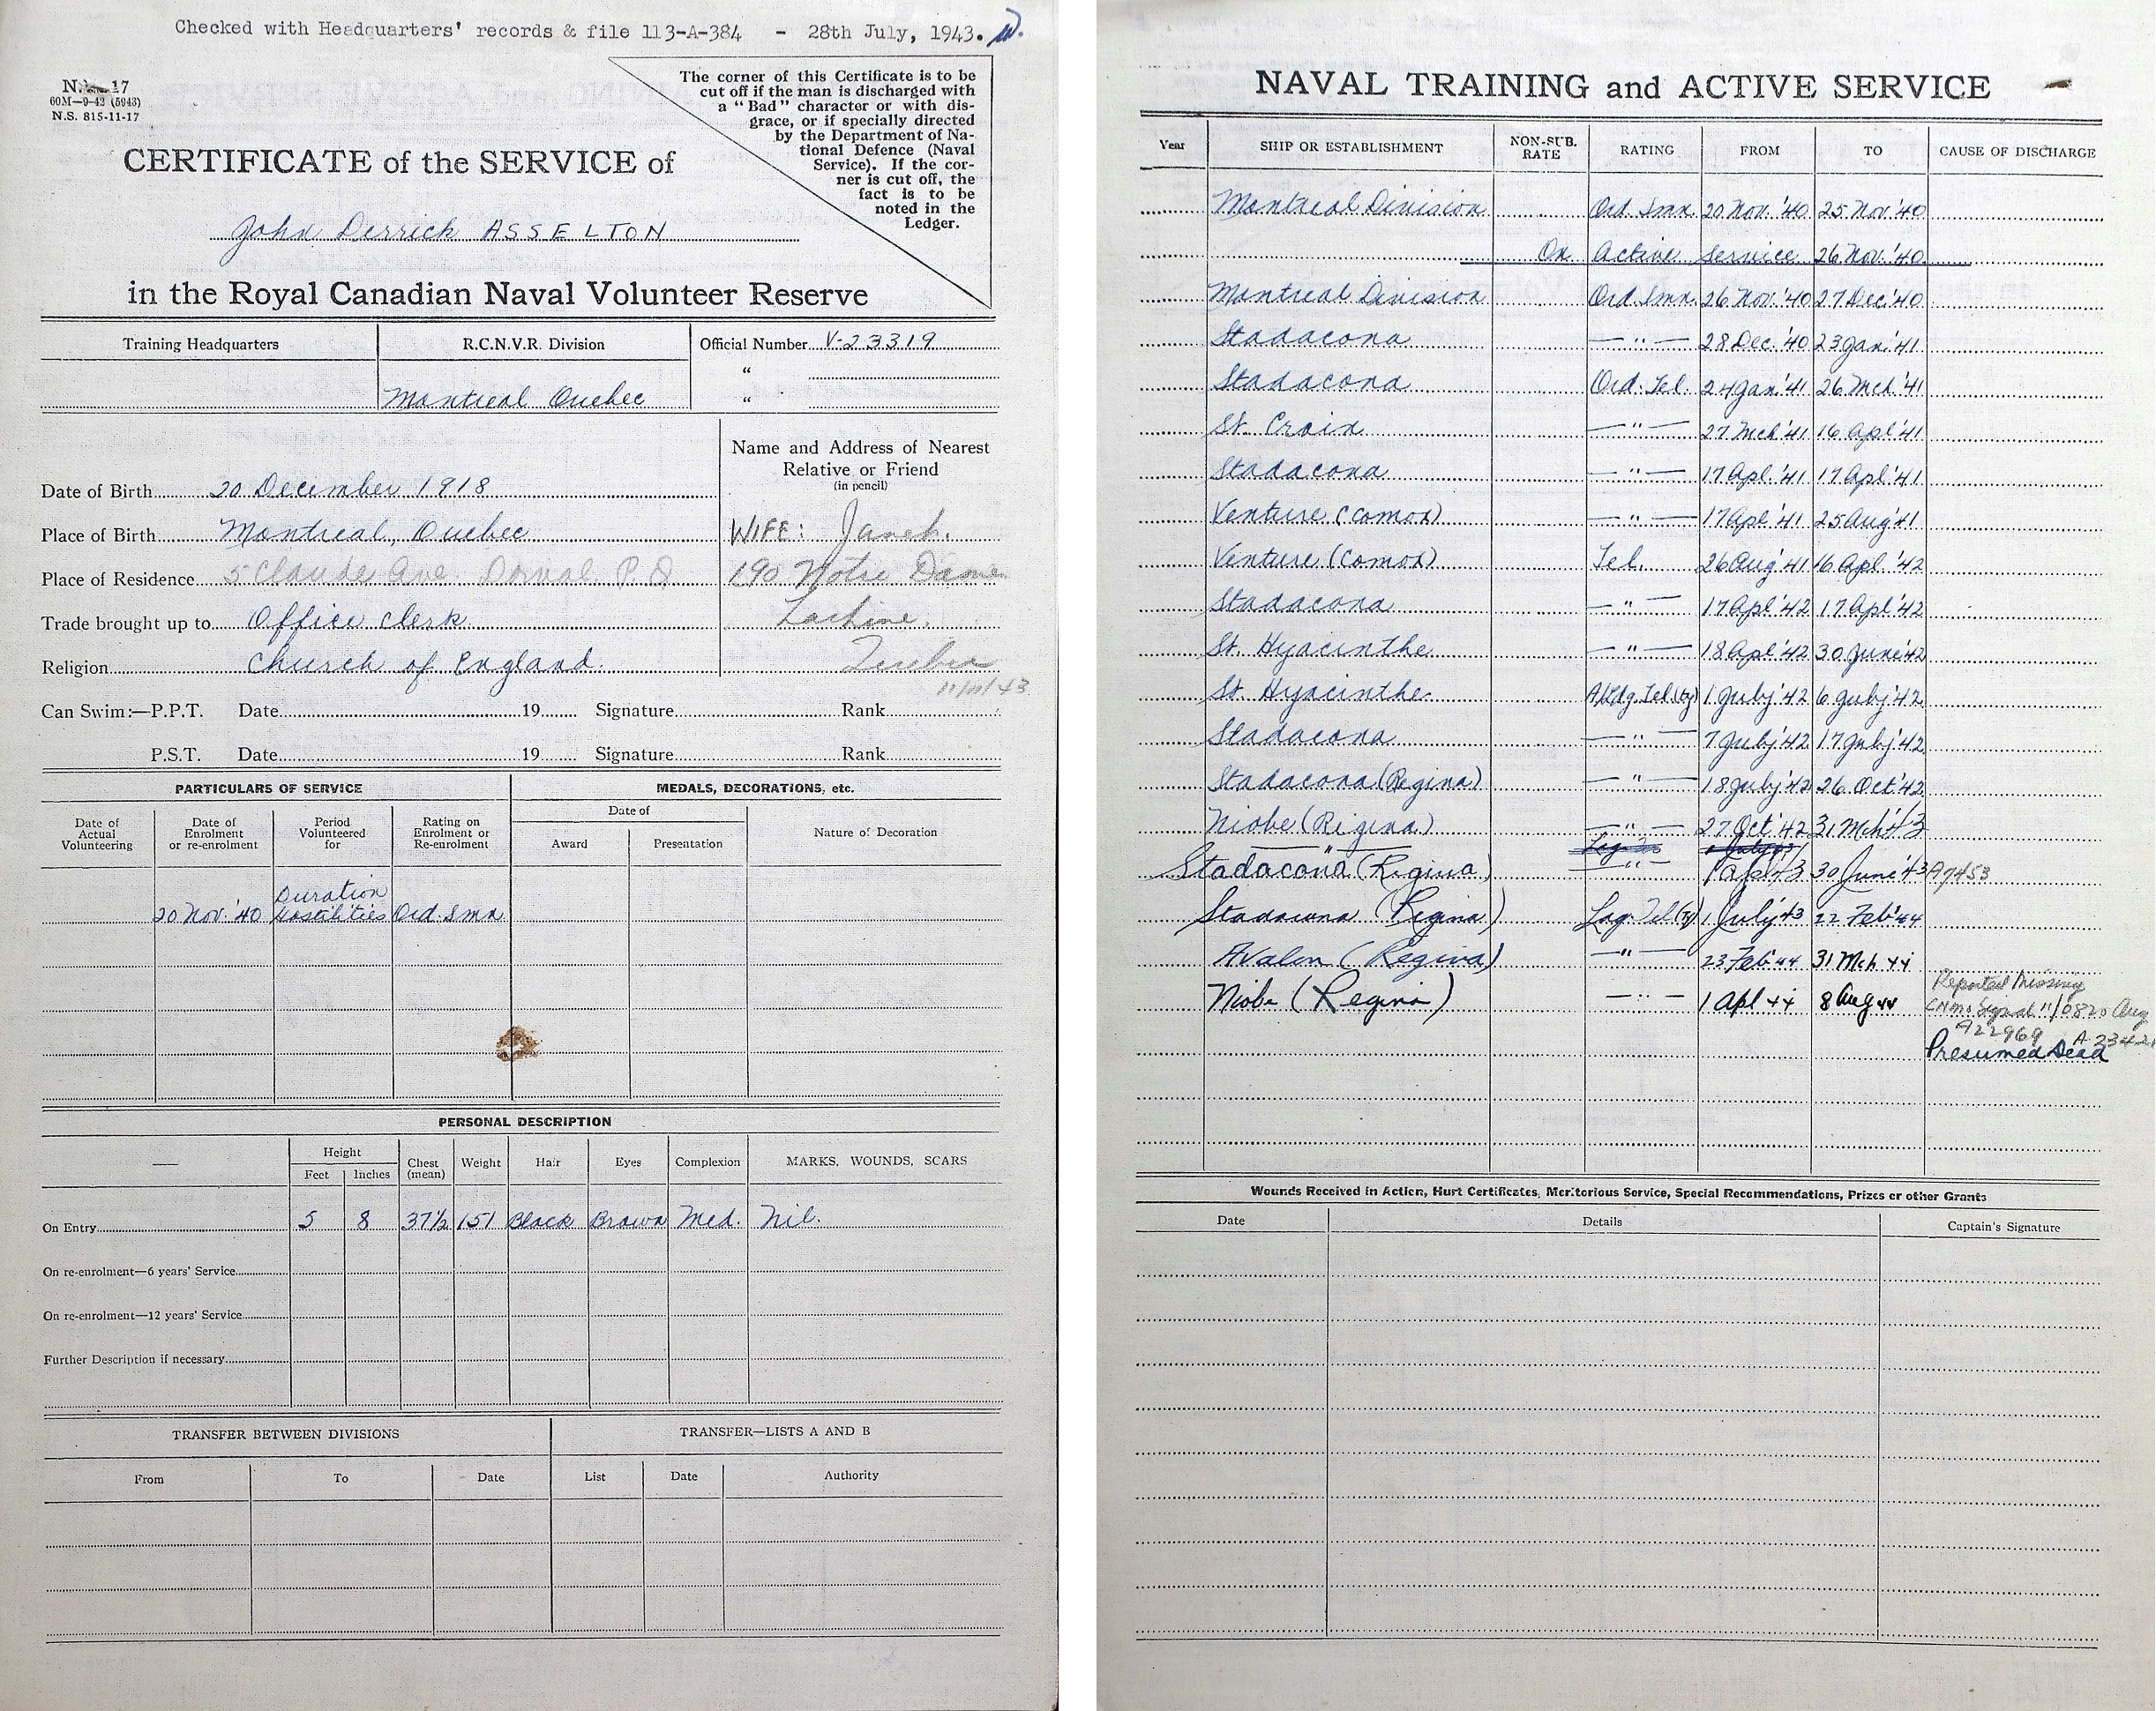 Checked with Headquarters' records & file 113-A-384 - 28th July, 1943.
17
60M—9-42 (5943)
N.S. 815-11-17
The corner of this Certificate is to be
cut off if the man is discharged with
a "Bad" character or with dis-
grace, or if specially directed
by the Department of Na-
tional Defence (Naval
Service). If the cor-
ner is cut off, the
fact is to be
noted in the
Ledger.
CERTIFICATE of the SERVICE of
John Derrick ASSELTON
in the Royal Canadian Naval Volunteer Reserve
Training Headquarters
R.C.N.V.R. Division
Montreal Quebec
Official Number V-23319
"
"
Name and Address of Nearest
Relative or Friend
(in pencil)
WIFE: Janet.
190 Notre Dame
Lachine.
Quebec
Date of Birth 20 December 1918
Place of Birth Montreal, Quebec
Place of Residence 5 Claude Ave. Dorval P.Q
Trade brought up to Office clerk
Religion Church of England.
Can Swim:—P.P.T. Date 19 Signature Rank
P.S.T. Date 19 Signature Rank
PARTICULARS OF SERVICE
MEDALS, DECORATIONS, etc.
Date of Actual Volunteering
Date of Enrolment or re-enrolment
Period Volunteered for
Rating on Enrolment or Re-enrolment
Date of
Award
Presentation
Nature of Decoration
Duration
20 Nov. '40 Hostilities Ord. Smn
PERSONAL DESCRIPTION
Height
Feet Inches
Chest (mean)
Weight
Hair
Eyes
Complexion
MARKS, WOUNDS, SCARS
On Entry 5 8 37½ 151 Black Brown Med. Nil.
On re-enrolment—6 years' Service
On re-enrolment—12 years' Service
Further Description if necessary
TRANSFER BETWEEN DIVISIONS
TRANSFER—LISTS A AND B
From To Date List Date Authority
NAVAL TRAINING and ACTIVE SERVICE
Year SHIP OR ESTABLISHMENT NON-SUB. RATE RATING FROM TO CAUSE OF DISCHARGE
Montreal Division Ord. Smn. 20 Nov. '40 25 Nov. '40
On Active Service 26 Nov. '40
Montreal Division Ord. Smn. 26 Nov. '40 27 Dec. '40
Stadacona —"— 28 Dec. '40 23 Jan. '41
Stadacona Ord. Tel. 24 Jan. '41 26 Mch '41
St. Croix —"— 27 Mch '41 16 Apl '41
Stadacona —"— 17 Apl. '41 17 Apl '41
Venture (Comox) —"— 17 Apl '41 25 Aug '41
Venture (Comox) Tel. 26 Aug '41 16 Apl. '42
Stadacona —"— 17 Apl '42 17 Apl '42
St. Hyacinthe —"— 18 Apl '42 30 June '42
St. Hyacinthe A/Ldg. Tel. (ty) 1 July '42 6 July '42
Stadacona —"— 7 July '42 17 July '42
Stadacona (Regina) —"— 18 July '42 26 Oct '42
Niobe (Regina) —"— 27 Oct '42 31 Mch '43
Stadacona (Regina) —"— 1 Apl '43 30 June '43 A7453
Stadacona (Regina) Ldg. Tel (ty) 1 July '43 22 Feb '44
Avalon (Regina) —"— 23 Feb 44 31 Mch 44
Niobe (Regina) —"— 1 Apl 44 8 Aug 44
Reported Missing
Signal 11/0820 Aug
A22969
Presumed Dead
Wounds Received in Action, Hurt Certificates, Meritorious Service, Special Recommendations, Prizes or other Grants
Date Details Captain's Signature